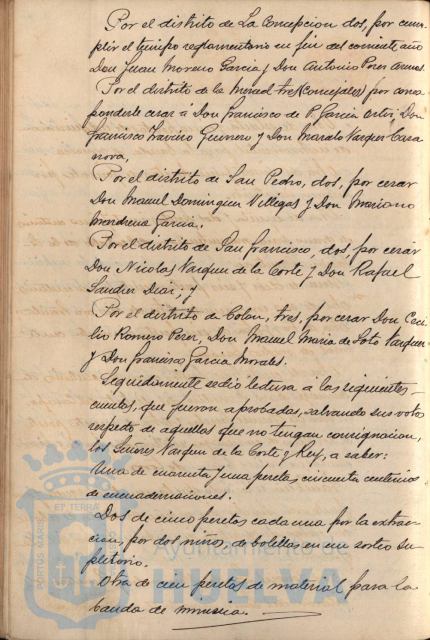 Por el distrito de La Concepcion dos, por cum-
plir el tiempo reglamentario en fin del corriente año
Don Juan Moreno Garcia y Don Antonio Perez
Por el distrito de la Merced tres (Concejales) por corres
ponderle cesar á Don Francisco de P. Garcia Ortiz, Don
Francisco Traviero Guerrero y Don Marcelo Vazquez Casa
nova,
Por el distrito de San Pedro, dos, por cesar
Don Manuel Dominguez Villegas y Don Mariano
Mendrena Garcia.
Por el distrito de San Francisco, dos, por cesar
Don Nicolas Vazquez de la Corte y Don Rafael
Sander Diaz; y
Por el distrito de Colon, tres, por cesar Don Ceci
lio Romero Perez, Don Manuel Maria de Soto Vazquez
y Don Francisco Garcia Morales.
Seguidamente se dió lectura a las siguientes
cuentas, que fueron aprobadas, salvando sus votos
respecto de aquellos que no tengan consignacion,
los Señores Vazquez de la Corte y Rey, a saber:
Una de cuarenta y una pesetas, cincuenta centimos
de encuadernaciones.
Dos de cinco pesetas cada una por la extrac-
cion, por dos niños, de bolillas en un sorteo su
pletorio.
Otra de cien pesetas de material para la
banda de musica.
PORTUS MARIS ET TERRÆ
Ayuntamiento de
HUELVA